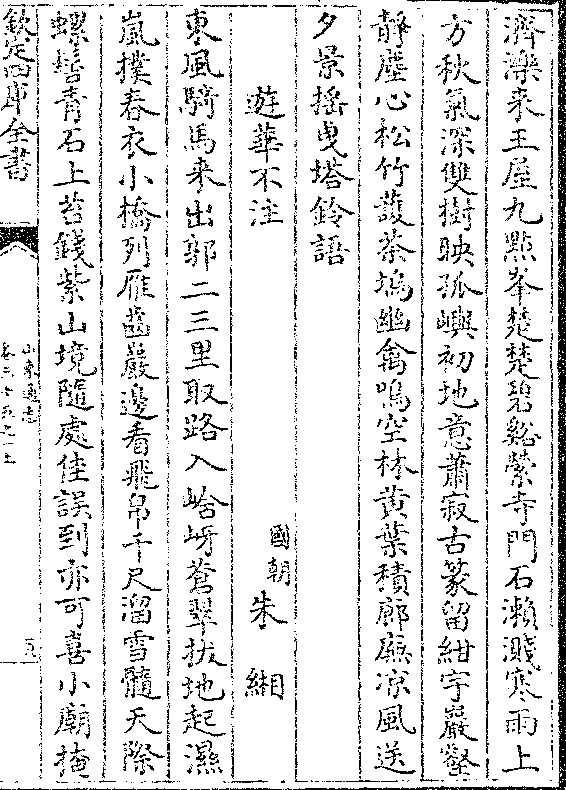 濟濼来王屋九㸃峯楚楚碧谿縈寺門石瀬濺寒雨上
方秋氣深雙樹映孤嶼初地意蕭寂古篆留紺宇巖壑
静塵心松竹䕶茶塢幽禽鳴空林黄葉積廊廡凉風送
夕景揺曵塔鈴語
遊華不注
國朝朱緗
東風騎馬来出郭二三里取路入㟏岈蒼翠拔地起濕
嵐撲春衣小橋列雁齒巖邊看飛帛千尺溜雪髓天際
螺髻青石上苔錢紫山境隨處佳誤到亦可喜小廟掩
欽定四庫全書
山東通志
卷三十五之一上
五